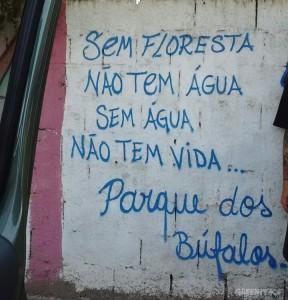 SEM FLORESTA
NÃO TEM ÁGUA
SEM ÁGUA
NÃO TEM VIDA...
Parque dos
Búfalos.
GREENPEACE